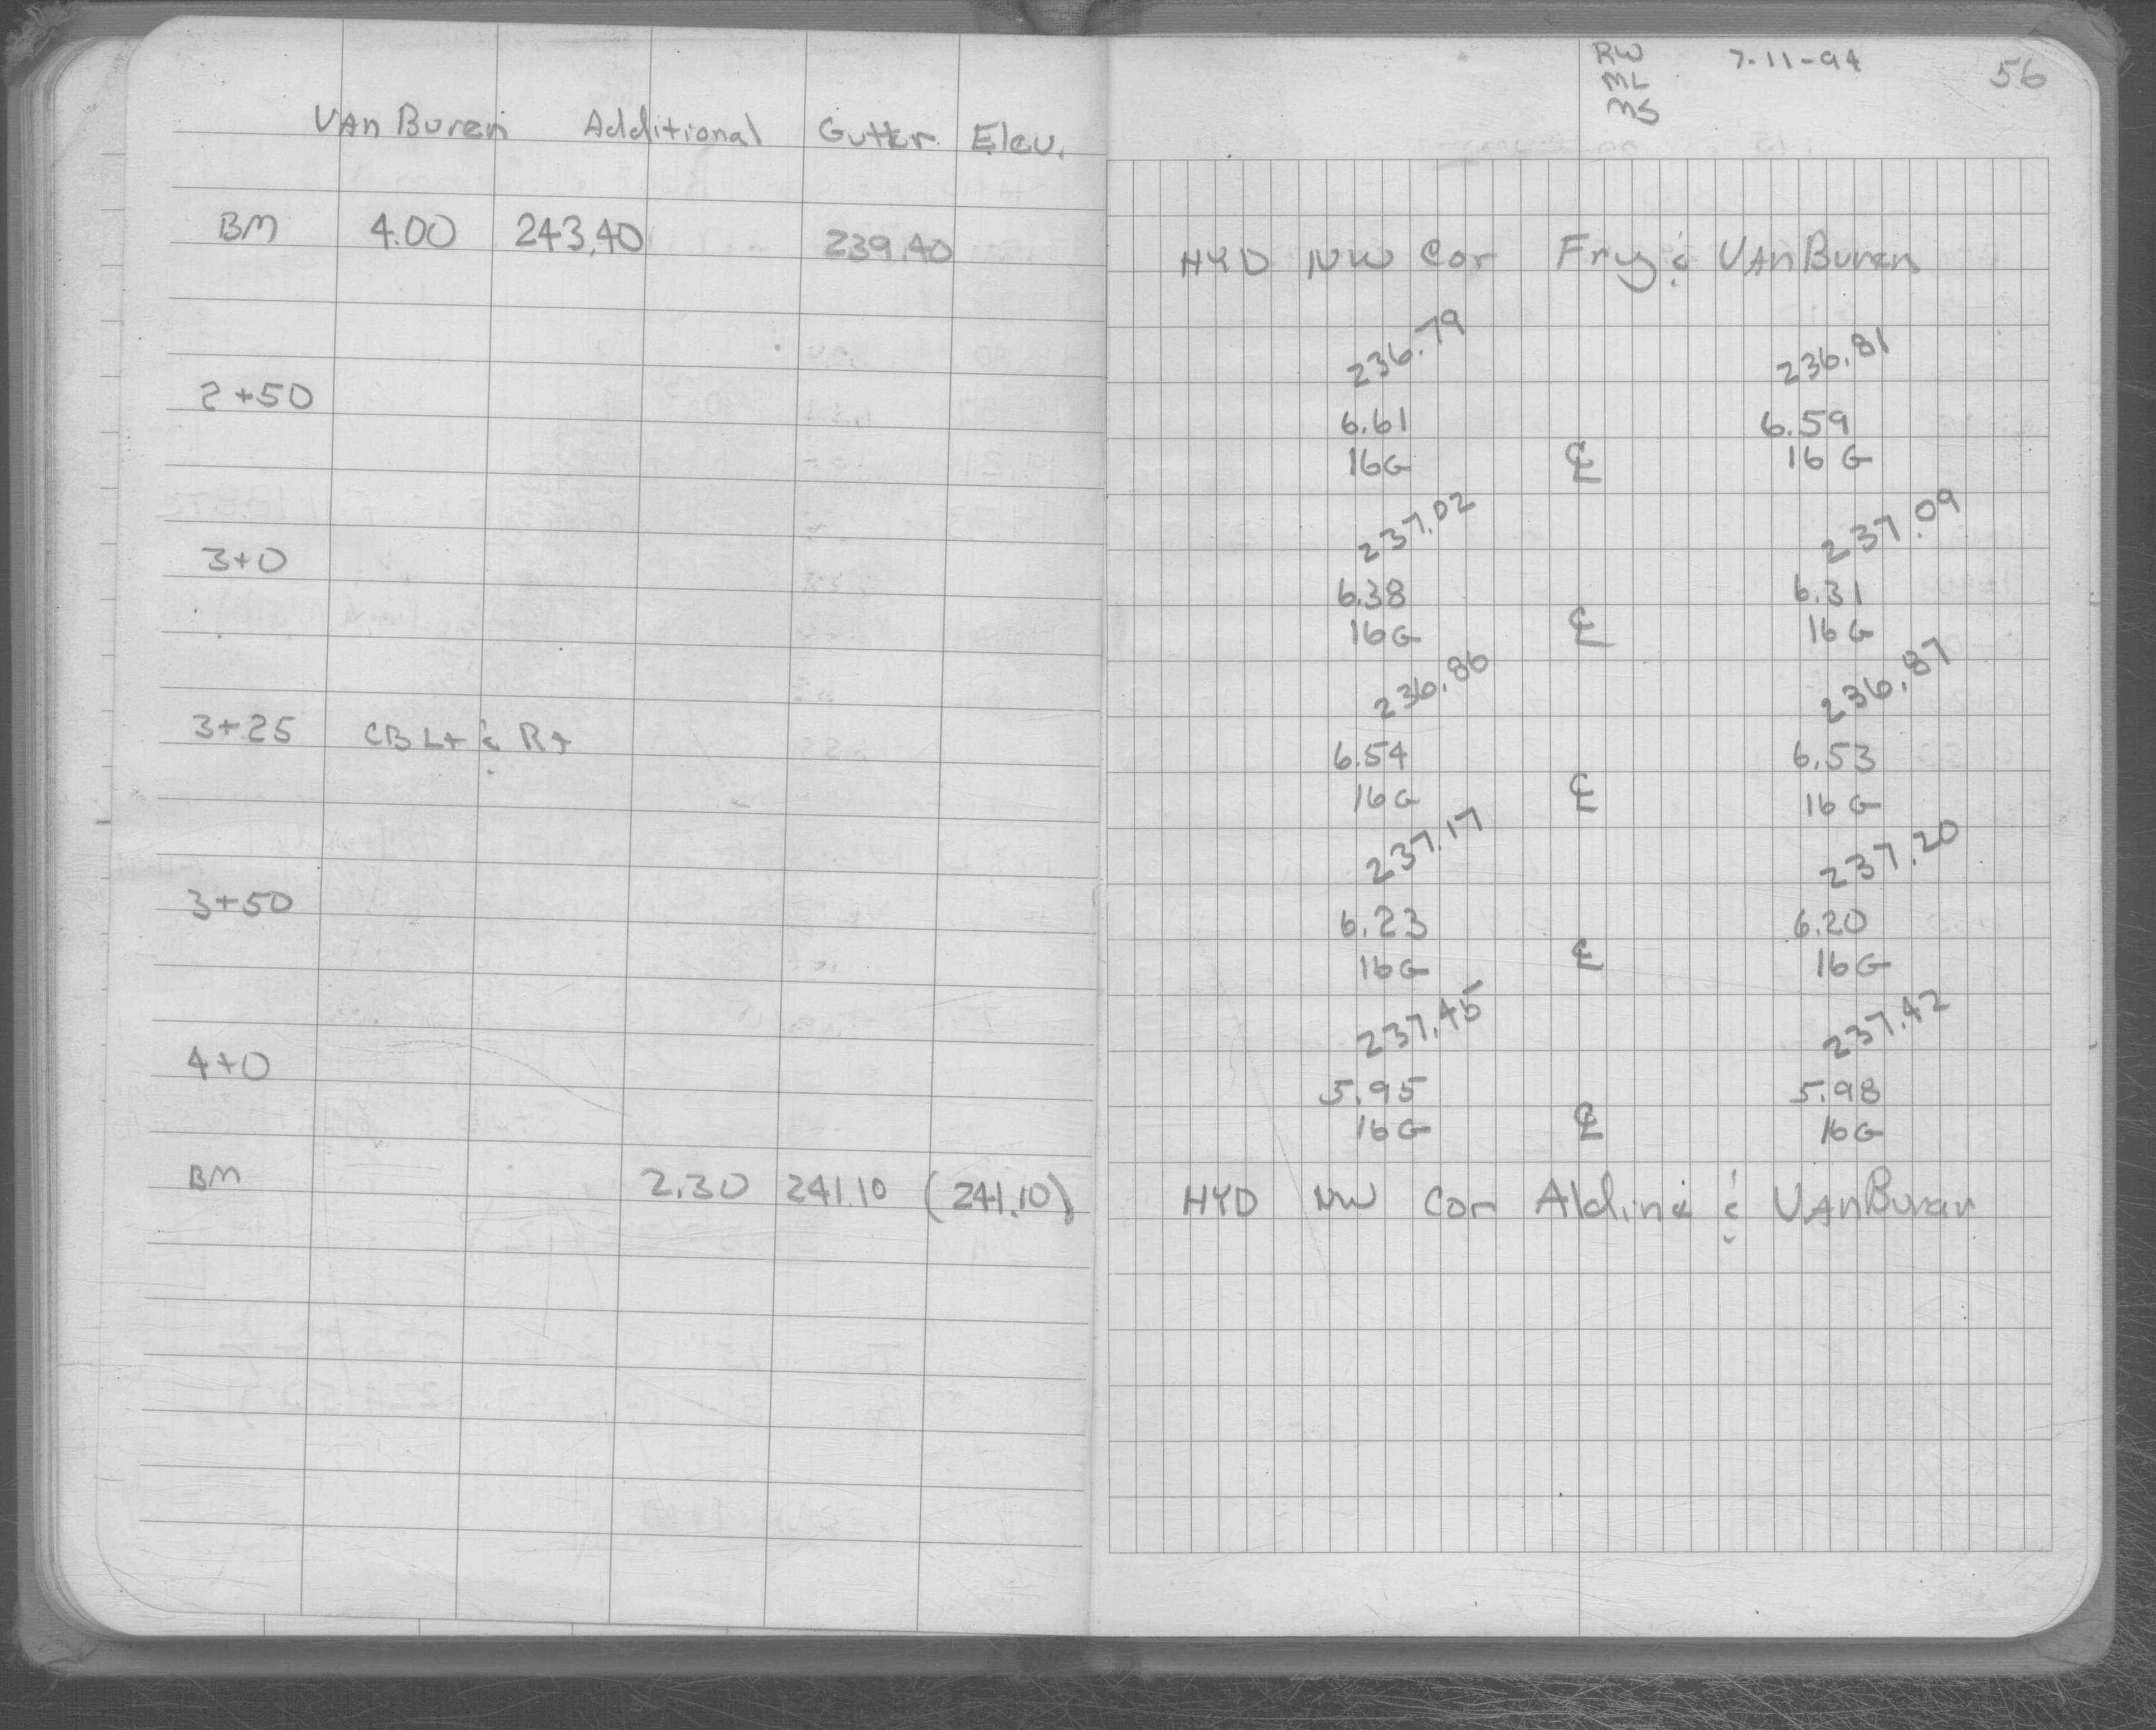 Van Buren Additional Gutter Elev.
BM 4.00 243.40 239.40
2+50
3+0
3+25 CB Lt & Rt
3+50
4+0
BM 2.30 241.10 (241.10)
RW 7-11-94 56
ML
MS
HYD NW Cor Fry & VAn Buren
236.79 236.81
6.61 6.59
16G ℄ 16 G
237.02 237.09
6.38 6.31
16G ℄ 16 G
236.86 236.87
6.54 6.53
16G ℄ 16 G
237.17 237.20
6.23 6.20
16G ℄ 16G
237.45 237.42
5.95 5.98
16G ℄ 16G
HYD NW Cor Aldine & VAnBuren